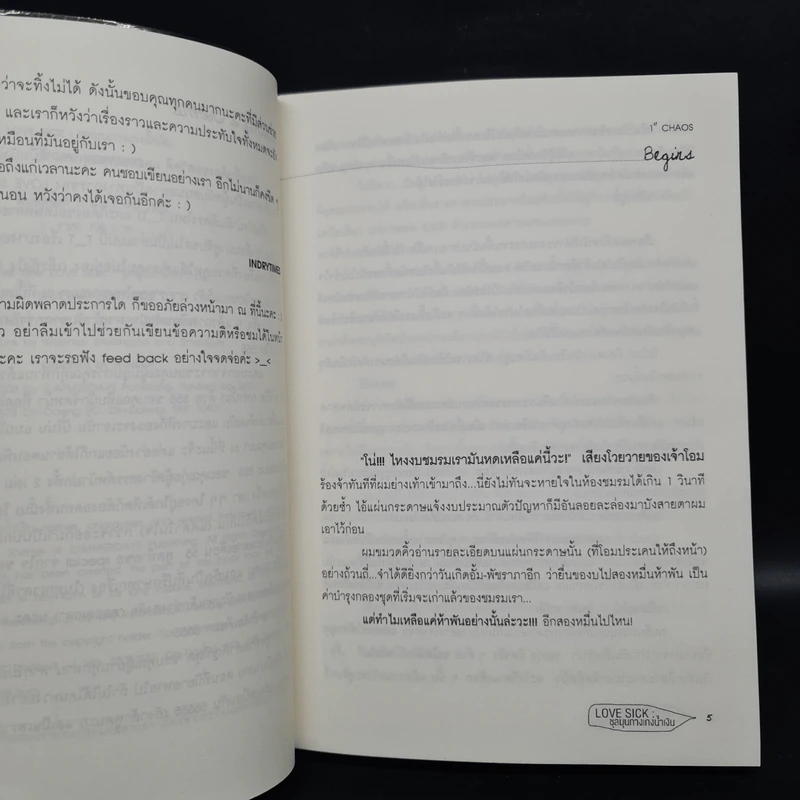 ว่าจะทิ้งไม่ได้ ดังนั้นขอบคุณทุกคนมากนะคะที่มีส่วนช่วย
และเราก็หวังว่าเรื่องราวและความประทับใจทั้งหมดจะยัง
หมือนที่มันอยู่กับเรา : )
อถึงแก่เวลานะคะ คนชอบเขียนอย่างเรา อีกไม่นานก็คงโผล่
นอน หวังว่าคงได้เจอกันอีกค่ะ : )
INDRYTIMES
ามผิดพลาดประการใด ก็ขออภัยล่วงหน้ามา ณ ที่นี้นะคะ :
ว อย่าลืมเข้าไปช่วยกันเขียนข้อความติหรือชมได้ในหน้า
ะคะ เราจะรอฟัง feed back อย่างใจจดจ่อค่ะ >_<
1st CHAOS
Begins
"โน่!!! ไหงงบชมรมเรามันหดเหลือแค่นี้วะ!" เสียงโวยวายของเจ้าโอม
ร้องจ้าทันทีที่ผมย่างเท้าเข้ามาถึง...นี่ยังไม่ทันจะหายใจในห้องชมรมได้เกิน 1 วินาที
ด้วยซ้ำ ไอ้แผ่นกระดาษแจ้งงบประมาณตัวปัญหาก็มีอันลอยละล่องมาบังสายตาผม
เอาไว้ก่อน
ผมขมวดคิ้วอ่านรายละเอียดบนแผ่นกระดาษนั้น (ที่โอมประเคนให้ถึงหน้า)
อย่างถ้วนถี่...จำได้ดียิ่งกว่าวันเกิดอั้ม-พัชราภาอีก ว่ายื่นของบไปสองหมื่นห้าพัน เป็น
ค่าบำรุงกลองชุดที่เริ่มจะเก่าแล้วของชมรมเรา...
แต่ทำไมเหลือแค่ห้าพันอย่างนั้นล่ะวะ!!! อีกสองหมื่นไปไหน!
LOVE SICK :
ชุลมุนกางเกงน้ำเงิน
5